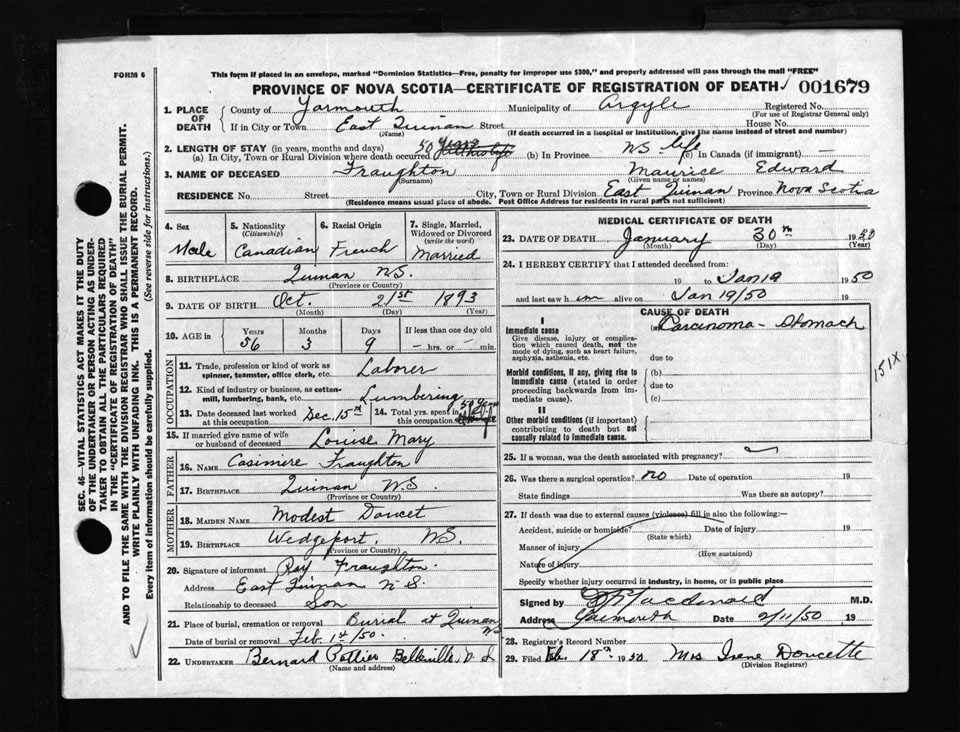 FORM 6
This form if placed in an envelope, marked "Dominion Statistics—Free, penalty for improper use $300," and properly addressed will pass through the mail "FREE"
PROVINCE OF NOVA SCOTIA—CERTIFICATE OF REGISTRATION OF DEATH 001679
1. PLACE OF DEATH County of Yarmouth Municipality of Argyle Registered No.
(For use of Registrar General only)
If in City or Town East Quinan Street House No.
(Name) (If death occurred in a hospital or institution, give the name instead of street and number)
2. LENGTH OF STAY (in years, months and days)
(a) In City, Town or Rural Division where death occurred 50 Years (b) In Province NS - life (c) In Canada (if immigrant) —
3. NAME OF DECEASED Fraughton Maurice Edward
(Surname) (Given name or names)
RESIDENCE No. Street City, Town or Rural Division East Quinan Province Nova Scotia
(Residence means usual place of abode. Post Office Address for residents in rural parts not sufficient)
4. Sex Male
5. Nationality (Citizenship) Canadian
6. Racial Origin French
7. Single, Married, Widowed or Divorced (write the word) Married
8. BIRTHPLACE Quinan N.S.
(Province or Country)
9. DATE OF BIRTH Oct. 21st 1893
(Month) (Day) (Year)
10. AGE in Years Months Days If less than one day old
56 3 9 — hrs. or — min.
OCCUPATION
11. Trade, profession or kind of work as spinner, teamster, office clerk, etc. Laborer
12. Kind of industry or business, as cotton-mill, lumbering, bank, etc. Lumbering
13. Date deceased last worked at this occupation Dec. 15th 14. Total yrs. spent in this occupation 50 Years
15. If married give name of wife or husband of deceased Louise Mary
FATHER
16. NAME Casimire Fraughton
17. BIRTHPLACE Quinan N.S.
(Province or Country)
MOTHER
18. MAIDEN NAME Modest Doucet
19. BIRTHPLACE Wedgeport, N.S.
(Province or Country)
20. Signature of informant Roy Fraughton
Address East Quinan N.S.
Relationship to deceased Son
21. Place of burial, cremation or removal Burial at Quinan NS
Date of burial or removal Feb. 1st/50.
22. UNDERTAKER Bernard Pottier Belleville, N.S.
(Name and address)
MEDICAL CERTIFICATE OF DEATH
23. DATE OF DEATH January 30th 1950
(Month) (Day) (Year)
24. I HEREBY CERTIFY that I attended deceased from:
19 to Jan 19 1950
and last saw him alive on Jan 19/50 19
CAUSE OF DEATH
I
Immediate cause (a) Carcinoma - Stomach
Give disease, injury or complication which caused death, not the mode of dying, such as heart failure, asphyxia, asthenia, etc.
due to
Morbid conditions, if any, giving rise to immediate cause (stated in order proceeding backwards from immediate cause).
(b)
due to
(c)
II
Other morbid conditions (if important) contributing to death but not causally related to immediate cause.
151X
25. If a woman, was the death associated with pregnancy?
26. Was there a surgical operation? no Date of operation 19
State findings Was there an autopsy?
27. If death was due to external causes (violence) fill in also the following:—
Accident, suicide or homicide? Date of injury 19
(State which)
Manner of injury
(How sustained)
Nature of injury
Specify whether injury occurred in industry, in home, or in public place
Signed by Macdonald M.D.
Address Yarmouth Date 2/11/50 19
28. Registrar's Record Number
29. Filed Feb. 18th 1950 Mrs Irene Doucette
(Division Registrar)
SEC. 46—VITAL STATISTICS ACT MAKES IT THE DUTY
OF THE UNDERTAKER OR PERSON ACTING AS UNDER-
TAKER TO OBTAIN ALL THE PARTICULARS REQUIRED
IN THE "CERTIFICATE OF REGISTRATION OF DEATH"
AND TO FILE THE SAME WITH THE DIVISION REGISTRAR WHO SHALL ISSUE THE BURIAL PERMIT.
WRITE PLAINLY WITH UNFADING INK. THIS IS A PERMANENT RECORD.
Every item of information should be carefully supplied. (See reverse side for instructions.)